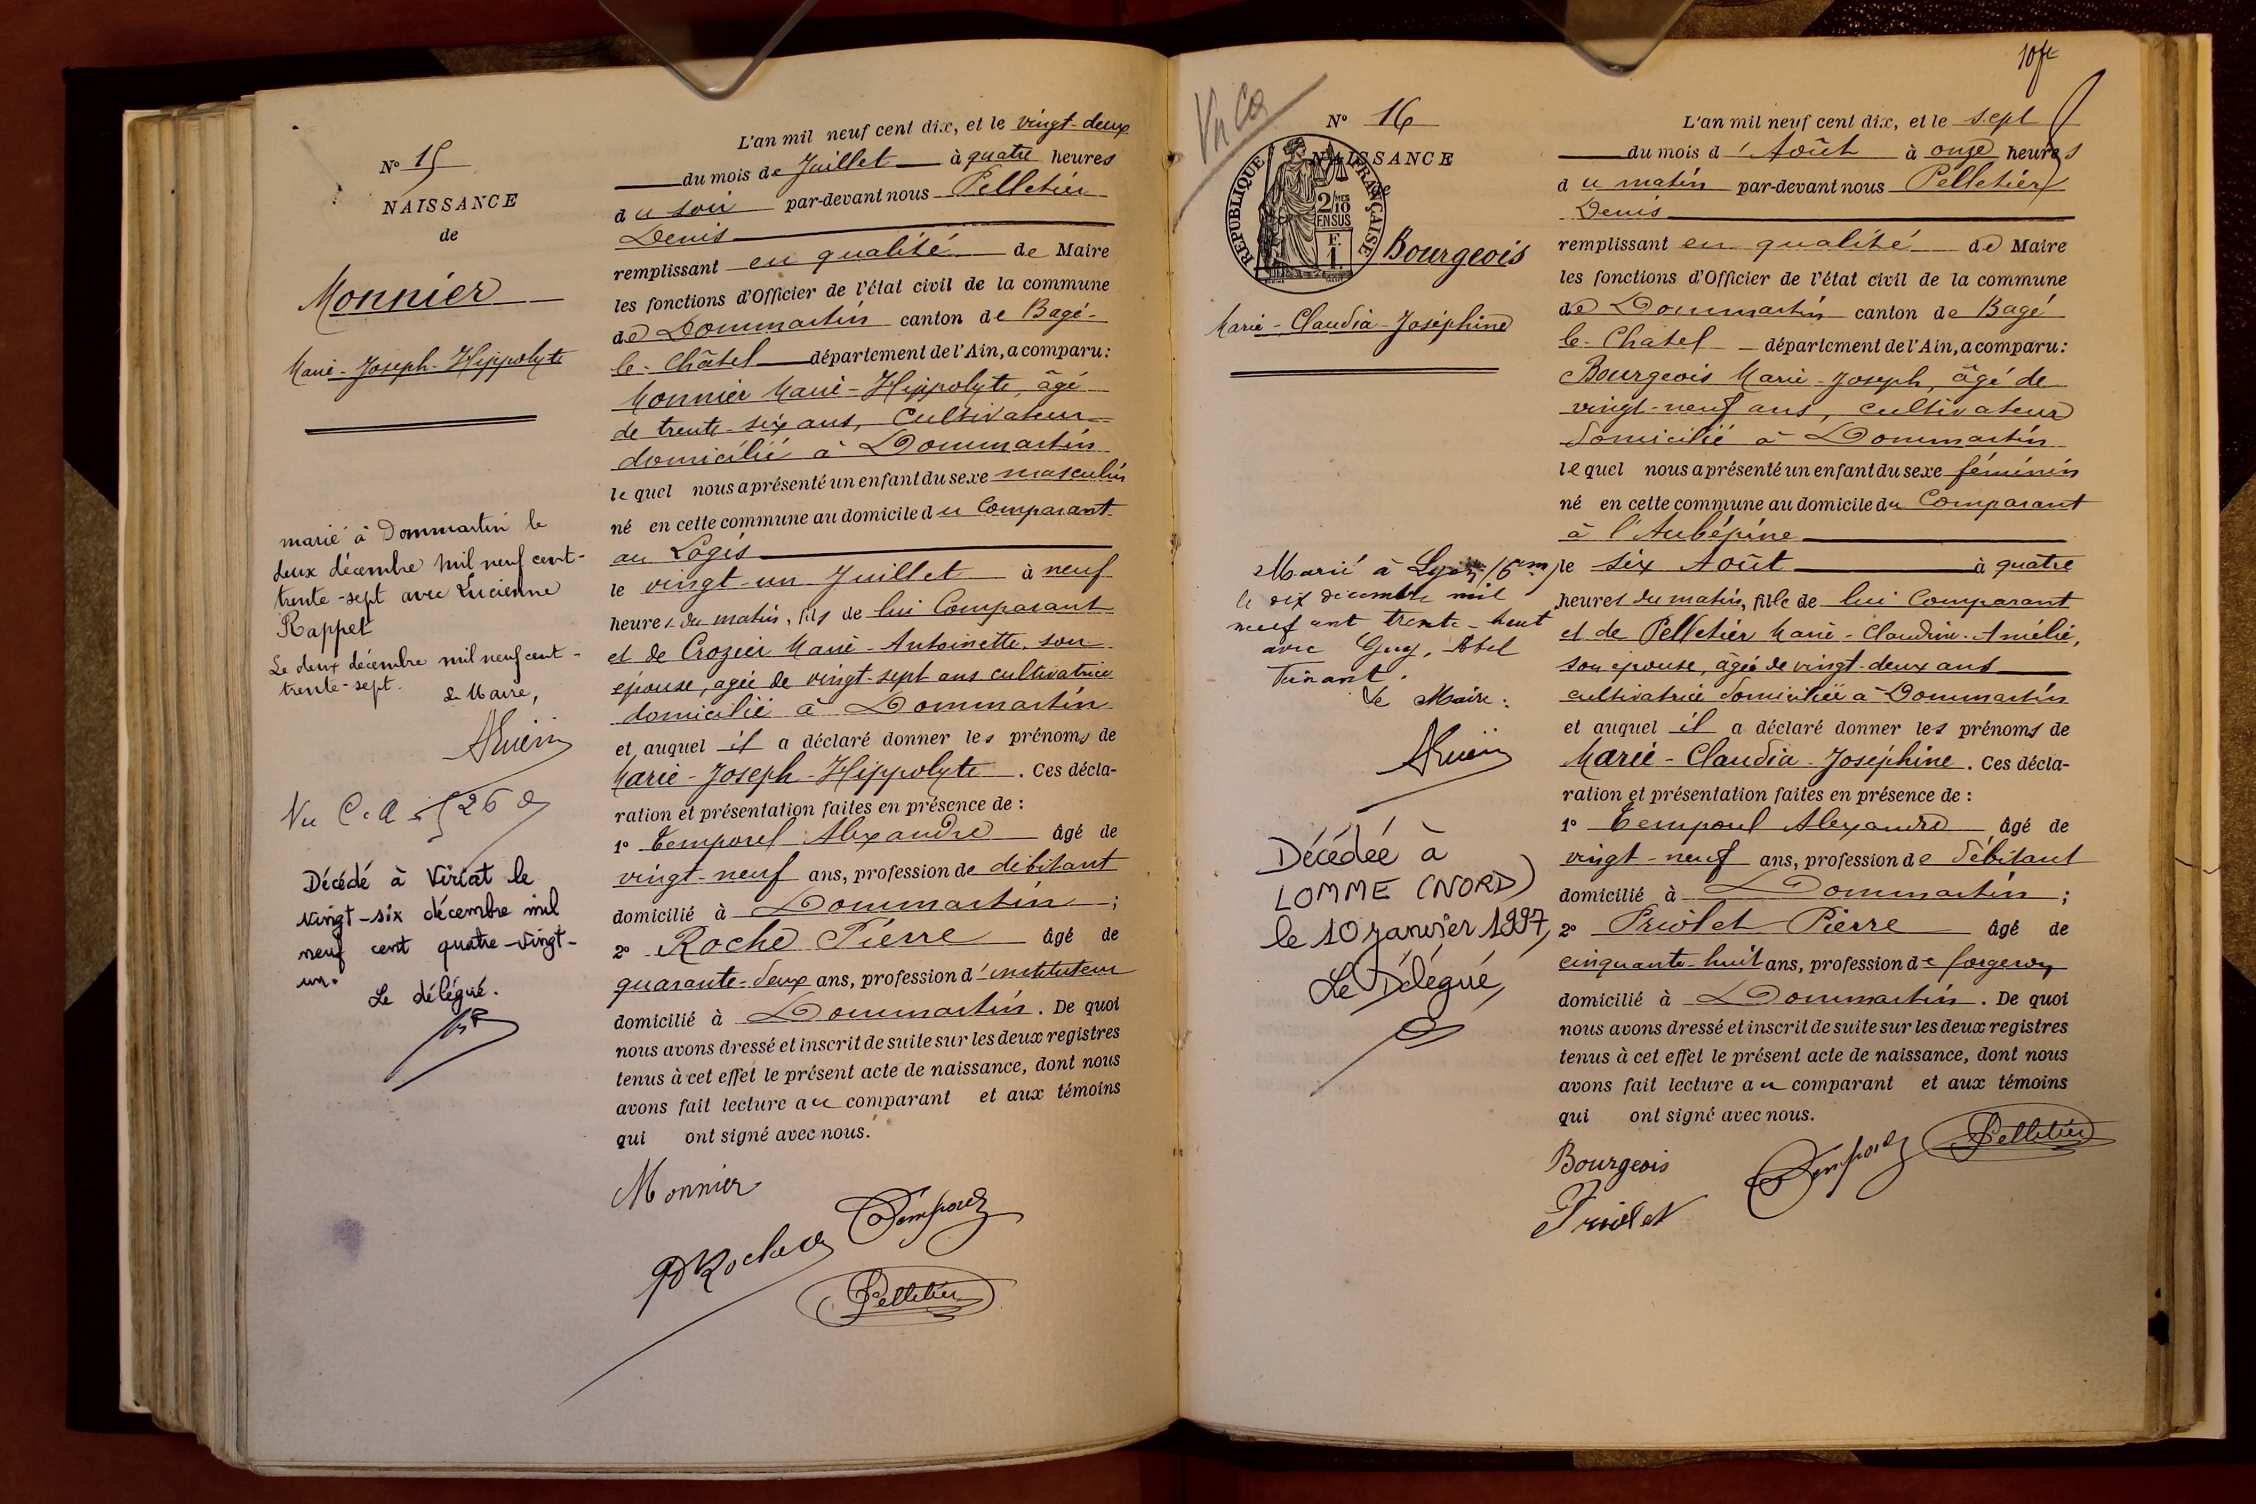 N° 15
NAISSANCE
de
Monnier
Marie-Joseph-Hippolyte
marié à Dommartin le
deux décembre mil neuf cent-
trente-sept avec Lucienne
Rappet
Le deux décembre mil neuf cent-
trente-sept.
Le Maire,
Vu C.A
Décédé à Viriat le
vingt-six décembre mil
neuf cent quatre-vingt-
un.
Le délégué.
L'an mil neuf cent dix, et le vingt-deux
du mois de Juillet à quatre heures
du soir par-devant nous Pelletier
Denis
remplissant en qualité de Maire
les fonctions d'Officier de l'état civil de la commune
de Dommartin canton de Bagé-
le-Châtel département de l'Ain, a comparu:
Monnier Marie-Hippolyte, âgé
de trente-six ans, cultivateur
domicilié à Dommartin
lequel nous a présenté un enfant du sexe masculin
né en cette commune au domicile du Comparant
au Logis
le vingt-un Juillet à neuf
heures du matin, fils de lui Comparant
et de Crozier Marie-Antoinette, son
épouse, agée de vingt-sept ans cultivatrice
domicilié à Dommartin
et auquel il a déclaré donner les prénoms de
Marie-Joseph-Hippolyte. Ces décla-
ration et présentation faites en présence de :
1° Temporel Alexandre âgé de
vingt-neuf ans, profession de débitant
domicilié à Dommartin ;
2° Roche Pierre âgé de
quarante-deux ans, profession d'instituteur
domicilié à Dommartin. De quoi
nous avons dressé et inscrit de suite sur les deux registres
tenus à cet effet le présent acte de naissance, dont nous
avons fait lecture au comparant et aux témoins
qui ont signé avec nous.
Monnier
Temporel
P Roche
Pelletier
10 fr
Vu Ca
N° 16
NAISSANCE
de
RÉPUBLIQUE FRANÇAISE
2/10
EN SUS
F.
1.
Bourgeois
Marie-Claudia-Joséphine
Marié à Lyon (6em)
le dix décembre mil
neuf cent trente-huit
avec Guy, Abel
Le Maire :
Décédée à
LOMME (NORD)
le 10 janvier 1997,
Le Délégué,
L'an mil neuf cent dix, et le sept
du mois d'Août à onze heures
du matin par-devant nous Pelletier
Denis
remplissant en qualité de Maire
les fonctions d'Officier de l'état civil de la commune
de Dommartin canton de Bagé
le-Chatel département de l'Ain, a comparu:
Bourgeois Marie-Joseph, âgé de
vingt-neuf ans, cultivateur
domicilié à Dommartin
lequel nous a présenté un enfant du sexe féminin
né en cette commune au domicile du Comparant
à l'Aubépine
le six Août à quatre
heures du matin, fille de lui Comparant
et de Pelletier Marie-Claudine-Amélie,
son épouse, âgée de vingt-deux ans
cultivatrice domiciliée à Dommartin
et auquel il a déclaré donner les prénoms de
Marie-Claudia-Joséphine. Ces décla-
ration et présentation faites en présence de :
1° Temporel Alexandre âgé de
vingt-neuf ans, profession de débitant
domicilié à Dommartin ;
2° Priolet Pierre âgé de
cinquante-huit ans, profession de forgeron
domicilié à Dommartin. De quoi
nous avons dressé et inscrit de suite sur les deux registres
tenus à cet effet le présent acte de naissance, dont nous
avons fait lecture au comparant et aux témoins
qui ont signé avec nous.
Bourgeois
Temporel
Pelletier
Priolet